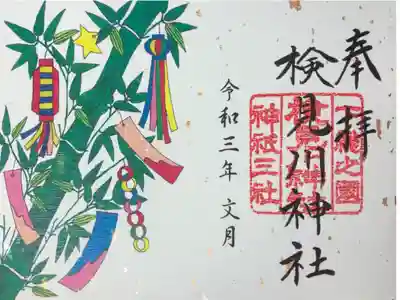 奉拝
検見川神社
神祇三社
令和三年文月